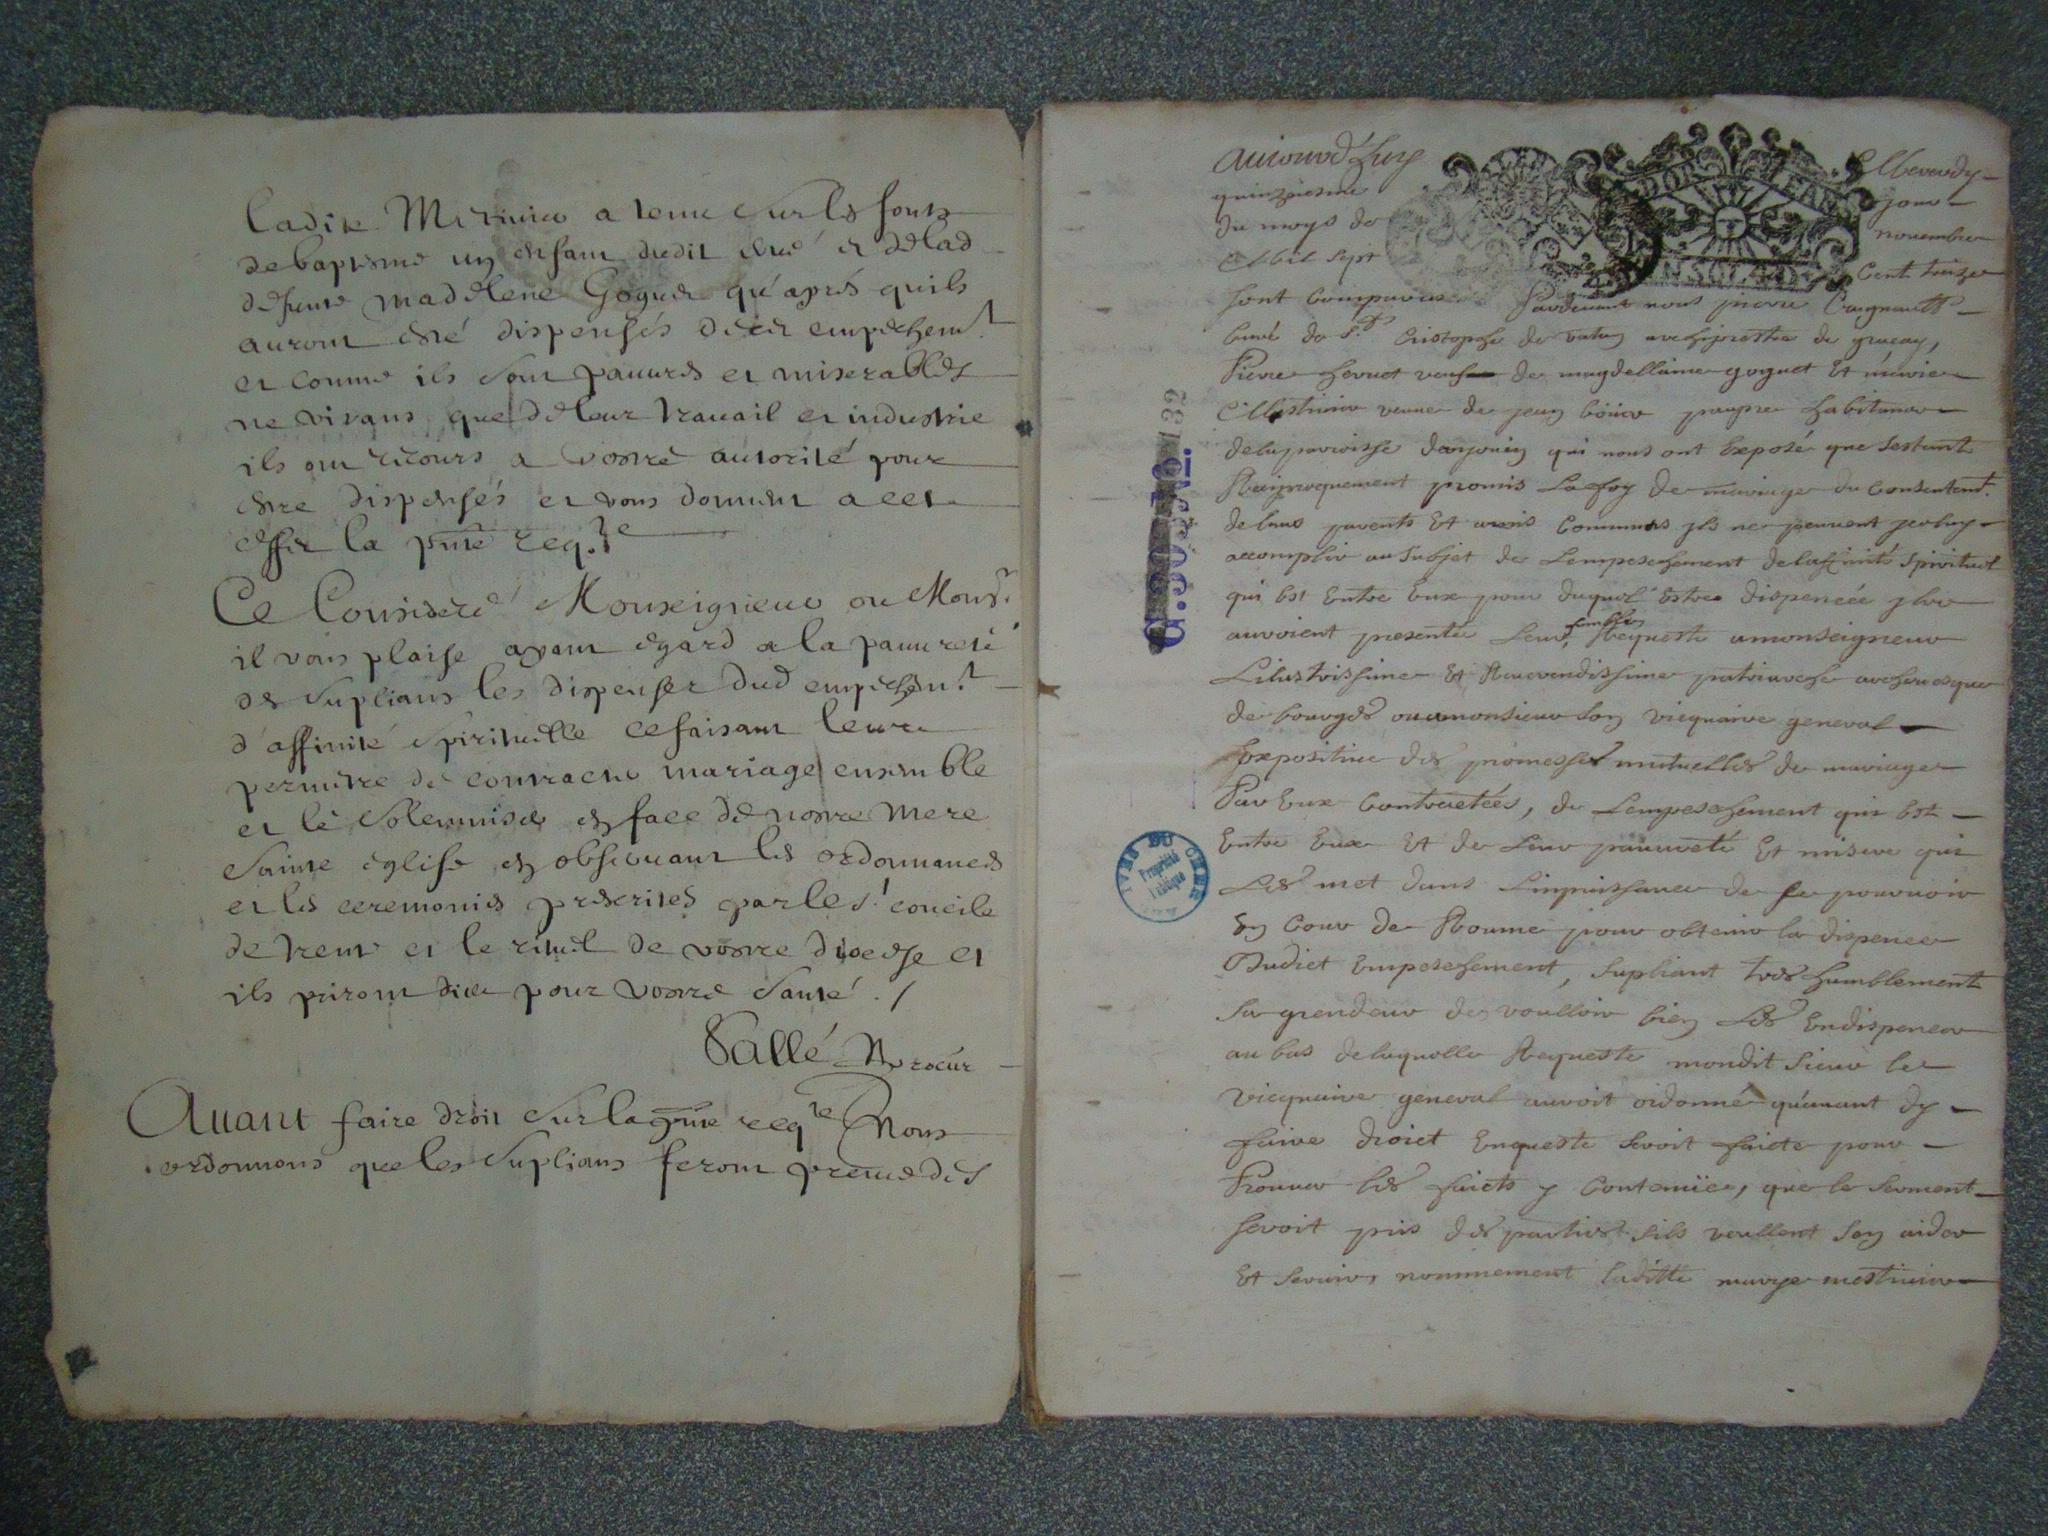 ladite Metiuier a tenu sur les fonts
de baptesme un enfant dudit erué et de lad
defunte madelene Goguet qu'aprés quils
auront esté dispensés dicel empechemt
et comme ils sont pauures et miserables
ne vivans que de leur travail et industrie
ils ont recours a vostre autorité pour
estre dispensés et vous donnent a cet
effet la pnte reqte
Ce Consideré Monseigneur ou Monsr
il vous plaise ayant egard a la pauureté
des suplians les dispenser dud empechemt
d'affinité spirituelle ce faisant leur
permettre de contracter mariage ensemble
et le solemniser en face de nostre mere
sainte eglise en observant les ordonnances
et les ceremonies prescrites par le st concile
de trente et le rituel de vostre diocese et
ils priront dieu pour vostre santé ./
Sallé Procur
Auant faire droit sur la pnte reqte Nous
ordonnons que les suplians feront preuue des
aujourd'huy Mercredy
quinziesme jour
du moys de novembre
Mil sept Cent treize
D'ORLEANS
sont Comparus Pardevant nous pierre
Curé de St Cristophe de vatan archiprestre de graçay,
Pierre heruet veuf de magdellaine goguet Et marie
Mestivier veuue de jean paupre habitans
de la parroisse danjouin qui nous ont Exposé que sestant
Reciproquement promis La foy de mariage du Consentemt
de leurs parents Et amis Communs ils ne peuvent
accomplir au subjet de Lempeschement de laffinité spirituel
qui Est Entre Eux pour duquel Estre dispencée
auroient presenté Leur humble Requeste a monseigneur
Lilustrissime Et Reverendissime patriarche archevesque
de bourges ou a monsieur son vicquaire general
Expositive des promesses mutuelles de mariage
Par Eux Contractées, de Lempeschement qui Est
Entre Eux Et de Leur pauureté Et misere qui
Les met dans Linpuissance de se pourvoir
En Cour de Roume pour obtenir la dispence
Dudict Empeschement, supliant tres humblement
Sa grendeur de voulloir bien Les En dispencer
au bas de laquelle Requeste mondit Sieur le
vicquaire general auroit ordonné quauant dy
faire droict Enqueste seroit faicte pour
Prouuer les faicts y Contenüe, que le serment
seroit pris des parties sils veullent sen aider
Et sçavoir nommement laditte marye mestivier
G. 303 132
ARCHIVES DU CHER
Propriété
Publique